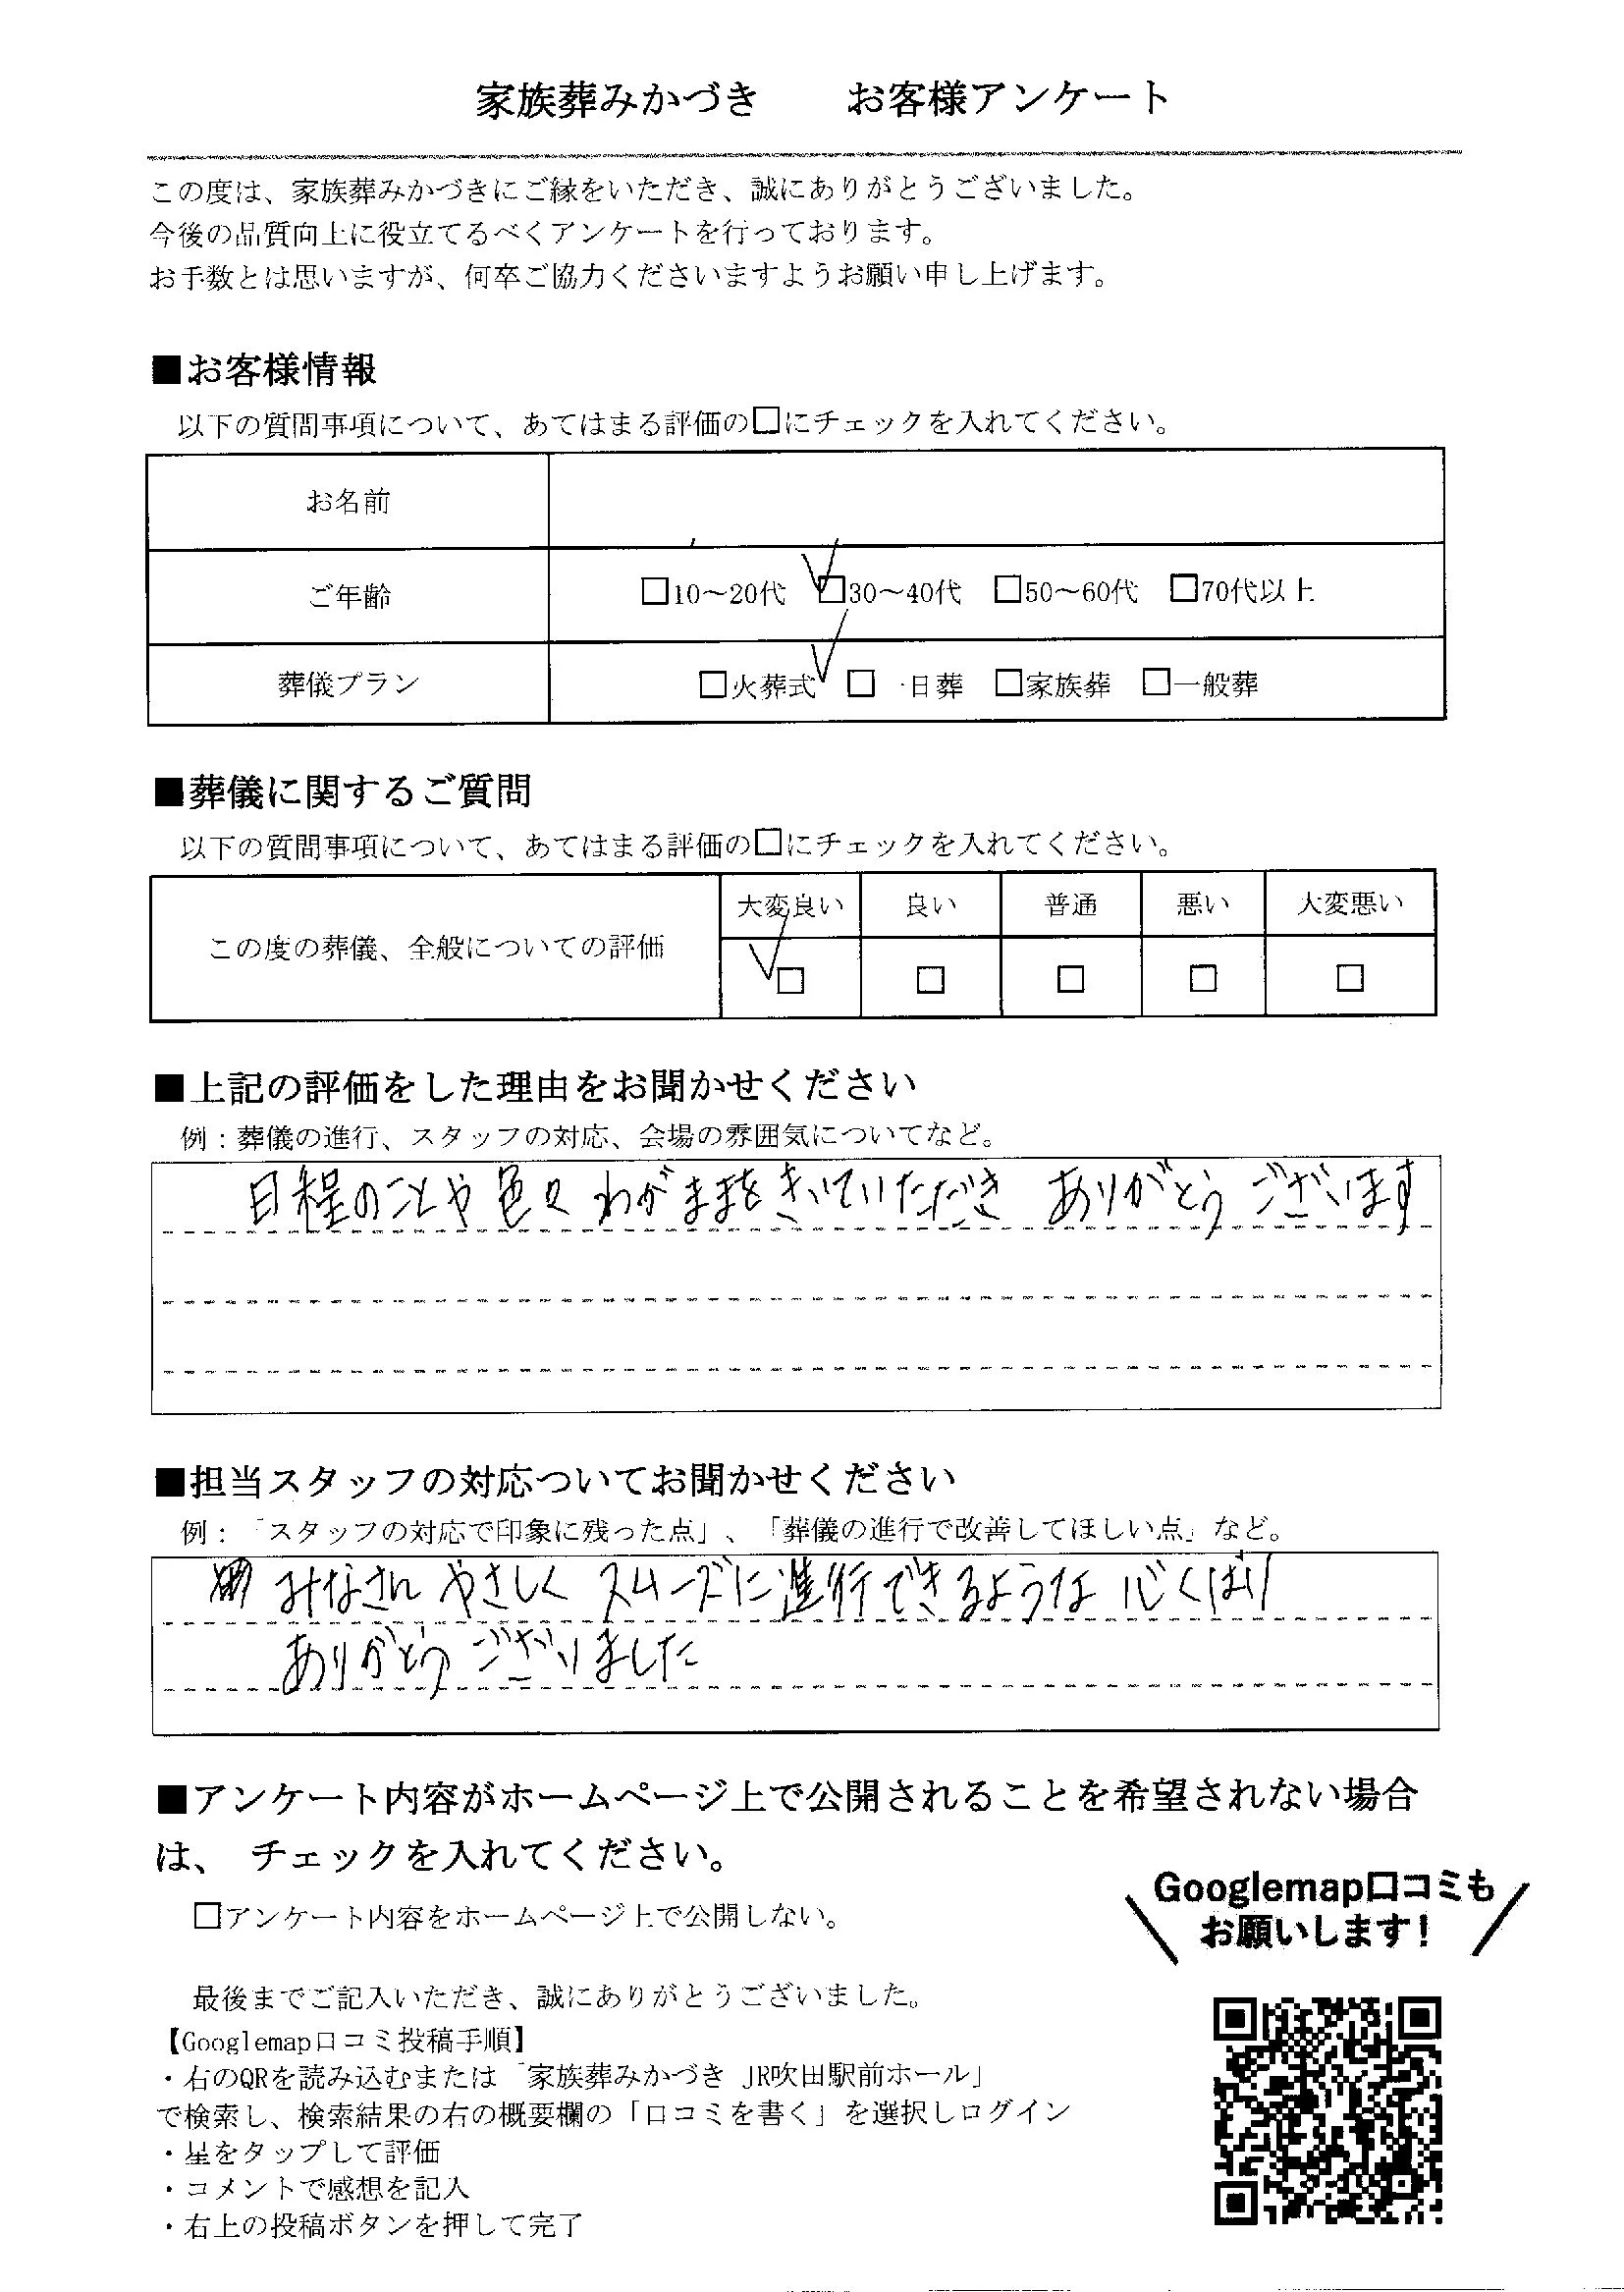 家族葬みかづき　　お客様アンケート
この度は、家族葬みかづきにご縁をいただき、誠にありがとうございました。
今後の品質向上に役立てるべくアンケートを行っております。
お手数とは思いますが、何卒ご協力くださいますようお願い申し上げます。
■お客様情報
以下の質問事項について、あてはまる評価の□にチェックを入れてください。
お名前
ご年齢　□10～20代　☑30～40代　□50～60代　□70代以上
葬儀プラン　□火葬式　☑一日葬　□家族葬　□一般葬
■葬儀に関するご質問
以下の質問事項について、あてはまる評価の□にチェックを入れてください。
大変良い　良い　普通　悪い　大変悪い
この度の葬儀、全般についての評価　☑　□　□　□　□
■上記の評価をした理由をお聞かせください
例：葬儀の進行、スタッフの対応、会場の雰囲気についてなど。
日程のことや色々わがままをきいていただき ありがとうございます
■担当スタッフの対応ついてお聞かせください
例：「スタッフの対応で印象に残った点」、「葬儀の進行で改善してほしい点」など。
みなさん やさしく スムーズに進行できるような 心くばり
ありがとうございました
■アンケート内容がホームページ上で公開されることを希望されない場合
は、 チェックを入れてください。
□アンケート内容をホームページ上で公開しない。
Googlemap口コミも
お願いします！
最後までご記入いただき、誠にありがとうございました。
【Googlemap口コミ投稿手順】
・右のQRを読み込むまたは「家族葬みかづき JR吹田駅前ホール」
で検索し、検索結果の右の概要欄の「口コミを書く」を選択しログイン
・星をタップして評価
・コメントで感想を記入
・右上の投稿ボタンを押して完了